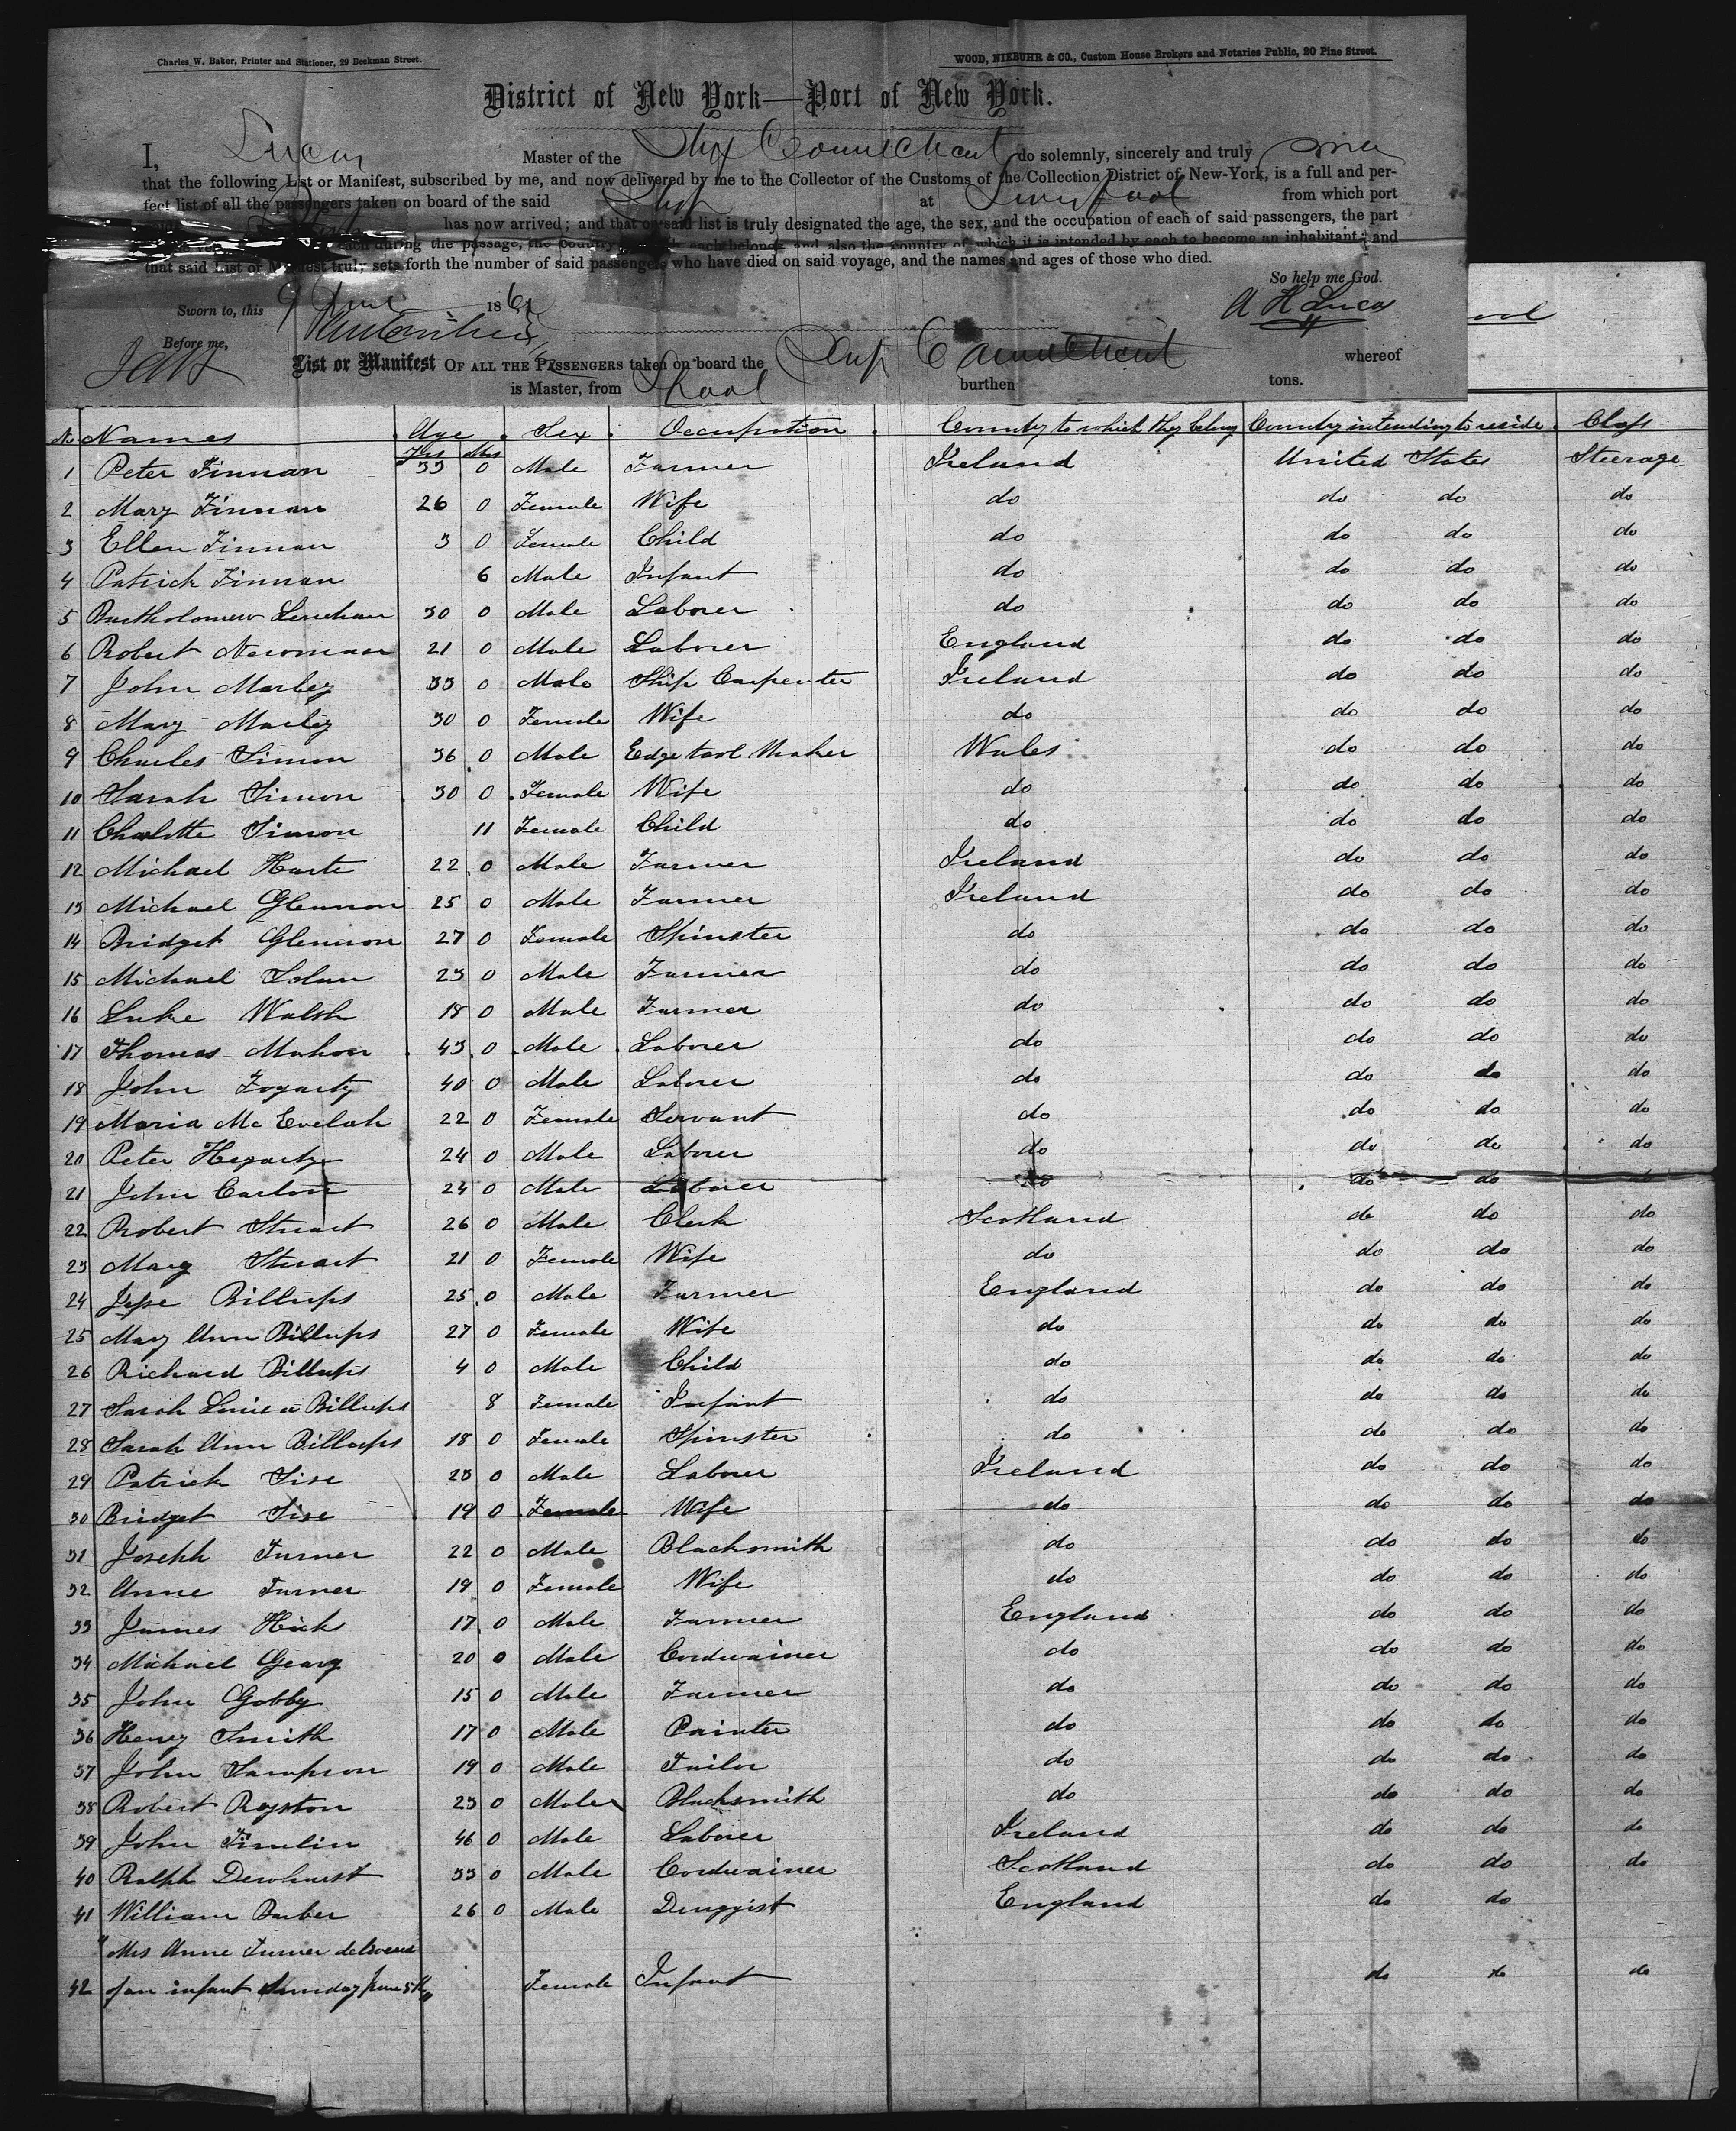 Charles W. Baker, Printer and Stationer, 29 Beekman Street.
WOOD, NIEBUHR & CO., Custom House Brokers and Notaries Public, 20 Pine Street.
District of New York—Port of New York.
I, Lucas Master of the Ship Connecticut do solemnly, sincerely and truly swear
that the following List or Manifest, subscribed by me, and now delivered by me to the Collector of the Customs of the Collection District of New-York, is a full and per-
fect list of all the passengers taken on board of the said Ship at Liverpool from which port
has now arrived; and that on said list is truly designated the age, the sex, and the occupation of each of said passengers, the part
each during the passage, the country each belongs and also the country of which it is intended by each to become an inhabitant; and
that said List or Manifest truly sets forth the number of said passengers who have died on said voyage, and the names and ages of those who died.
So help me God.
Sworn to, this 9 June 186
A H Lucas
Before me,
List or Manifest OF ALL THE PASSENGERS taken on board the Ship Connecticut whereof
is Master, from Lpool burthen tons.
No Names Age Sex Occupation Country to which they belong Country intending to reside Class
Yrs Mos
1 Peter Finnan 33 0 Male Farmer Ireland United States Steerage
2 Mary Finnan 26 0 Female Wife do do do do
3 Ellen Finnan 3 0 Female Child do do do do
4 Patrick Finnan 6 Male Infant do do do do
5 Bartholomew Lenehan 30 0 Male Laborer do do do do
6 Robert Newman 21 0 Male Laborer England do do do
7 John Marley 33 0 Male Ship Carpenter Ireland do do do
8 Mary Marley 30 0 Female Wife do do do do
9 Charles Simon 36 0 Male Edge tool Maker Wales do do do
10 Sarah Simon 30 0 Female Wife do do do do
11 Charlotte Simon 11 Female Child do do do do
12 Michael Harte 22 0 Male Farmer Ireland do do do
13 Michael Glennon 25 0 Male Farmer Ireland do do do
14 Bridget Glennon 27 0 Female Spinster do do do do
15 Michael Solan 23 0 Male Farmer do do do do
16 Luke Walsh 18 0 Male Farmer do do do do
17 Thomas Mahon 43 0 Male Laborer do do do do
18 John Fogarty 40 0 Male Laborer do do do do
19 Maria Mc Evelah 22 0 Female Servant do do do do
20 Peter Hegarty 24 0 Male Laborer do do do do
21 John Carlon 24 0 Male Laborer do do do do
22 Robert Stuart 26 0 Male Clerk Scotland do do do
23 Mary Stuart 21 0 Female Wife do do do do
24 Jesse Billups 25 0 Male Farmer England do do do
25 Mary Ann Billups 27 0 Female Wife do do do do
26 Richard Billups 4 0 Male Child do do do do
27 Sarah Louisa Billups 8 Female Infant do do do do
28 Sarah Ann Billups 18 0 Female Spinster do do do do
29 Patrick Sise 23 0 Male Laborer Ireland do do do
30 Bridget Sise 19 0 Female Wife do do do do
31 Joseph Turner 22 0 Male Blacksmith do do do do
32 Anne Turner 19 0 Female Wife do do do do
33 James Hick 17 0 Male Farmer England do do do
34 Michael Geary 20 0 Male Cordwainer do do do do
35 John Gobby 15 0 Male Farmer do do do do
36 Henry Smith 17 0 Male Painter do do do do
37 John Sampson 19 0 Male Tailor do do do do
38 Robert Royston 23 0 Male Blacksmith do do do do
39 John Timlin 46 0 Male Laborer Ireland do do do
40 Ralph Dewhurst 33 0 Male Cordwainer Scotland do do do
41 William Barber 26 0 Male Druggist England do do
"Mrs Anne Turner delivered
42 of an infant Sunday June 5th" Female Infant do do do